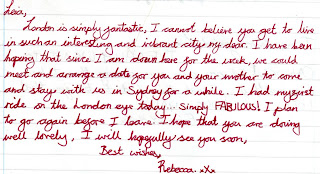 Leia,
London is simply fantastic, I cannot believe you get to live
in such an interesting and vibrant city my dear. I have been
hoping that since I am down here for the week, we could
meet and arrange a date for you and your mother to come
and stay with us in Sydney for a while. I had my first
ride on the London eye today... simply FABULOUS! I plan
to go again before I leave. I hope that you are doing
well lovely, I will hopefully see you soon,
Best wishes,
Rebecca. xXx